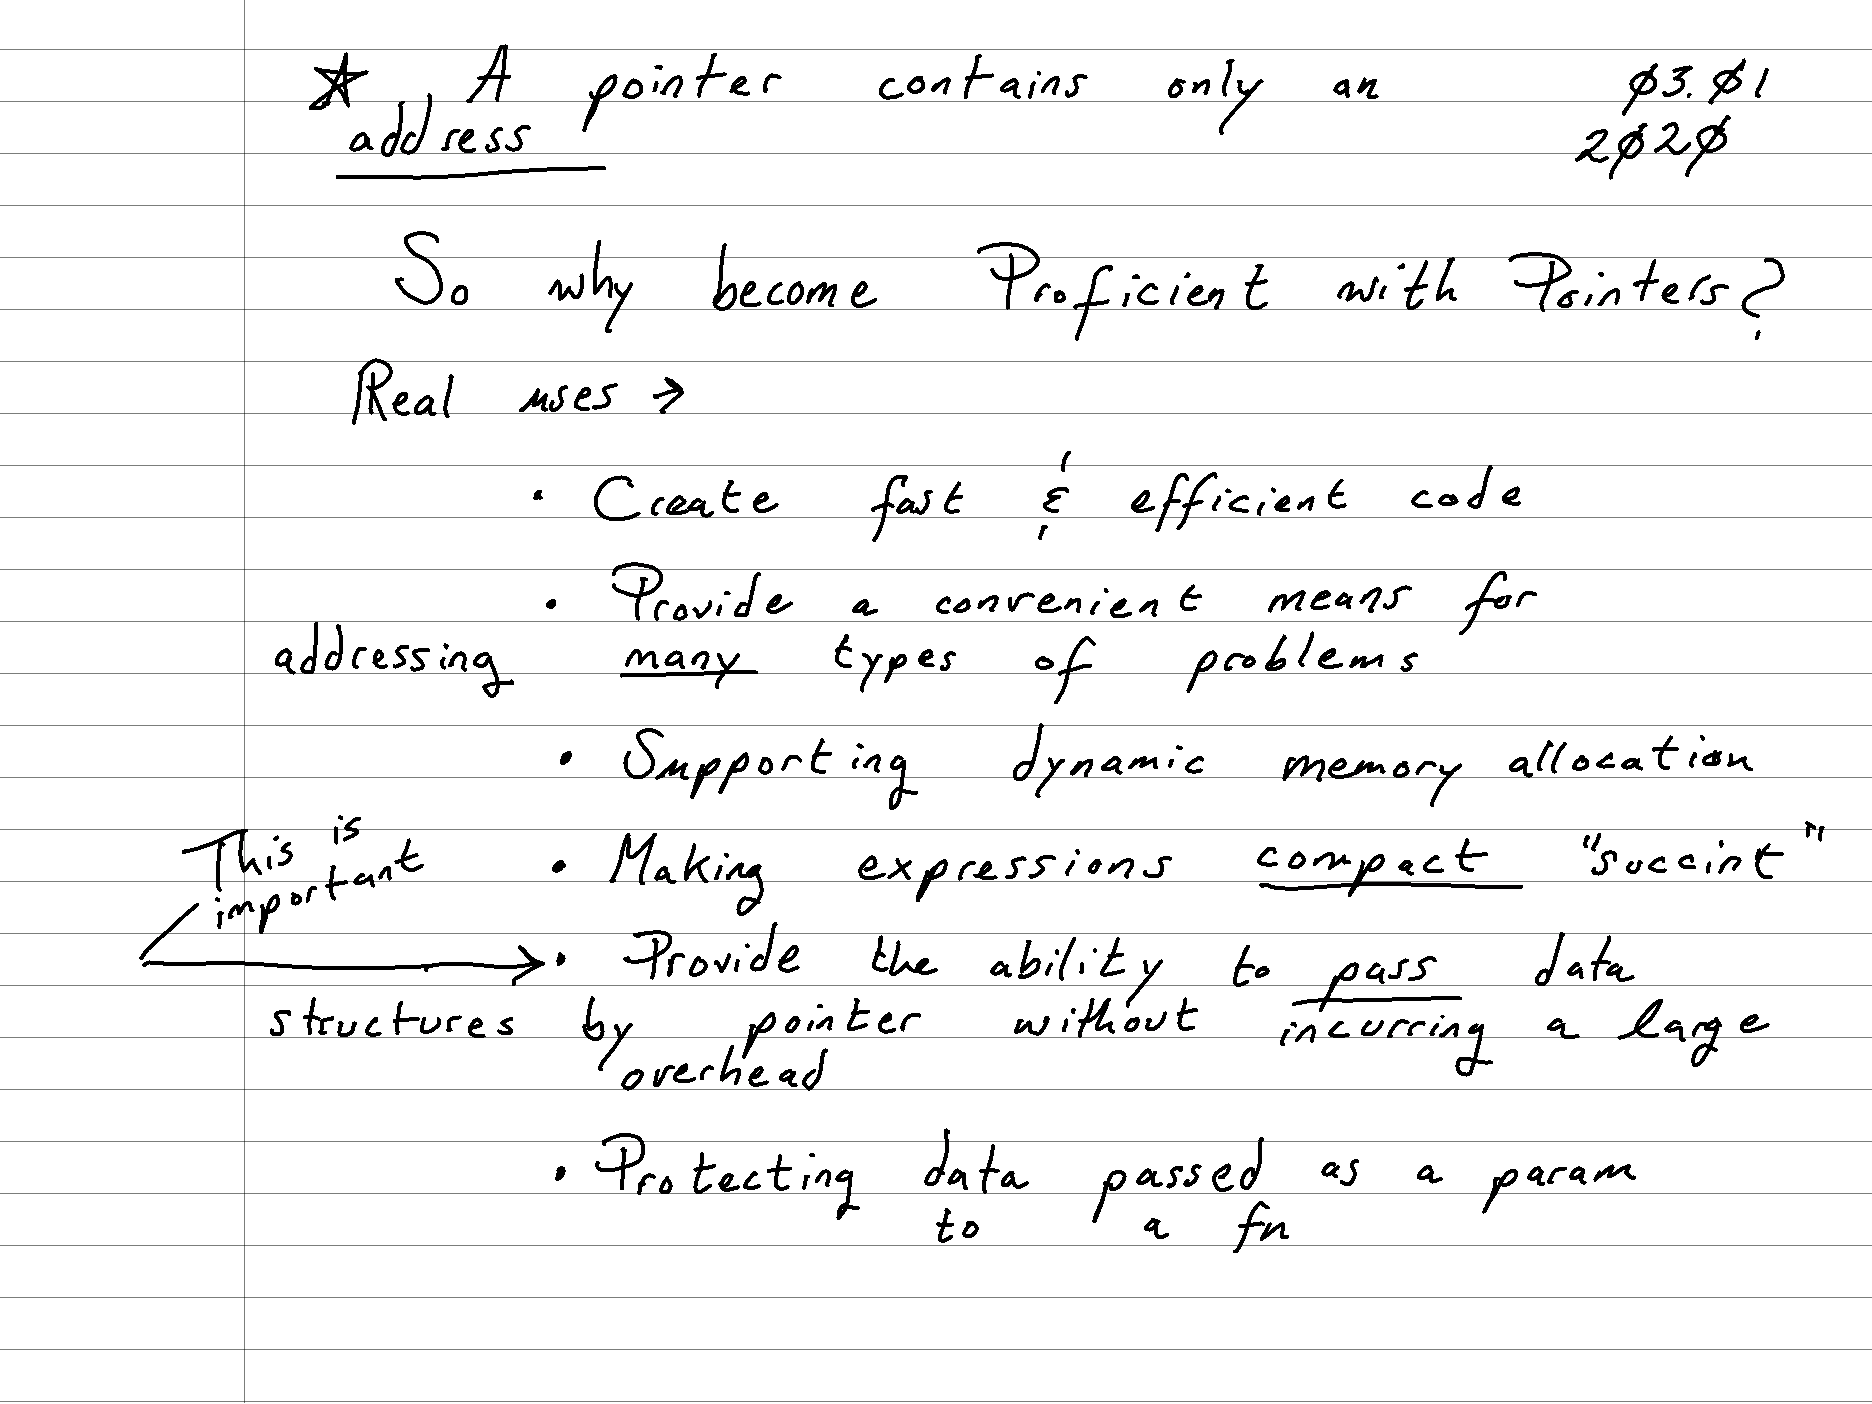 ☆ A pointer contains only an Ø3.Ø1
address 2Ø2Ø
So why become Proficient with Pointers?
Real uses →
• Create fast & efficient code
• Provide a convenient means for
addressing many types of problems
• Supporting dynamic memory allocation
This is
important
• Making expressions compact "succint"
• Provide the ability to pass data
structures by pointer without incurring a large
overhead
• Protecting data passed as a param
to a fn